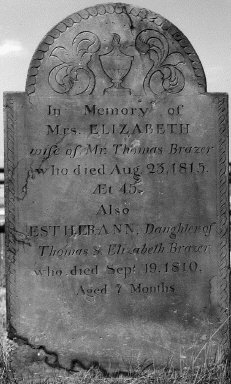 In Memory of
Mrs. ELIZABETH
wife of Mr. Thomas Brazer
who died Aug. 25, 1815.
Æt 45.
Also
ESTHER ANN, Daughter of
Thomas & Elizabeth Brazer
who died Sept. 19. 1810.
Aged 7 Months